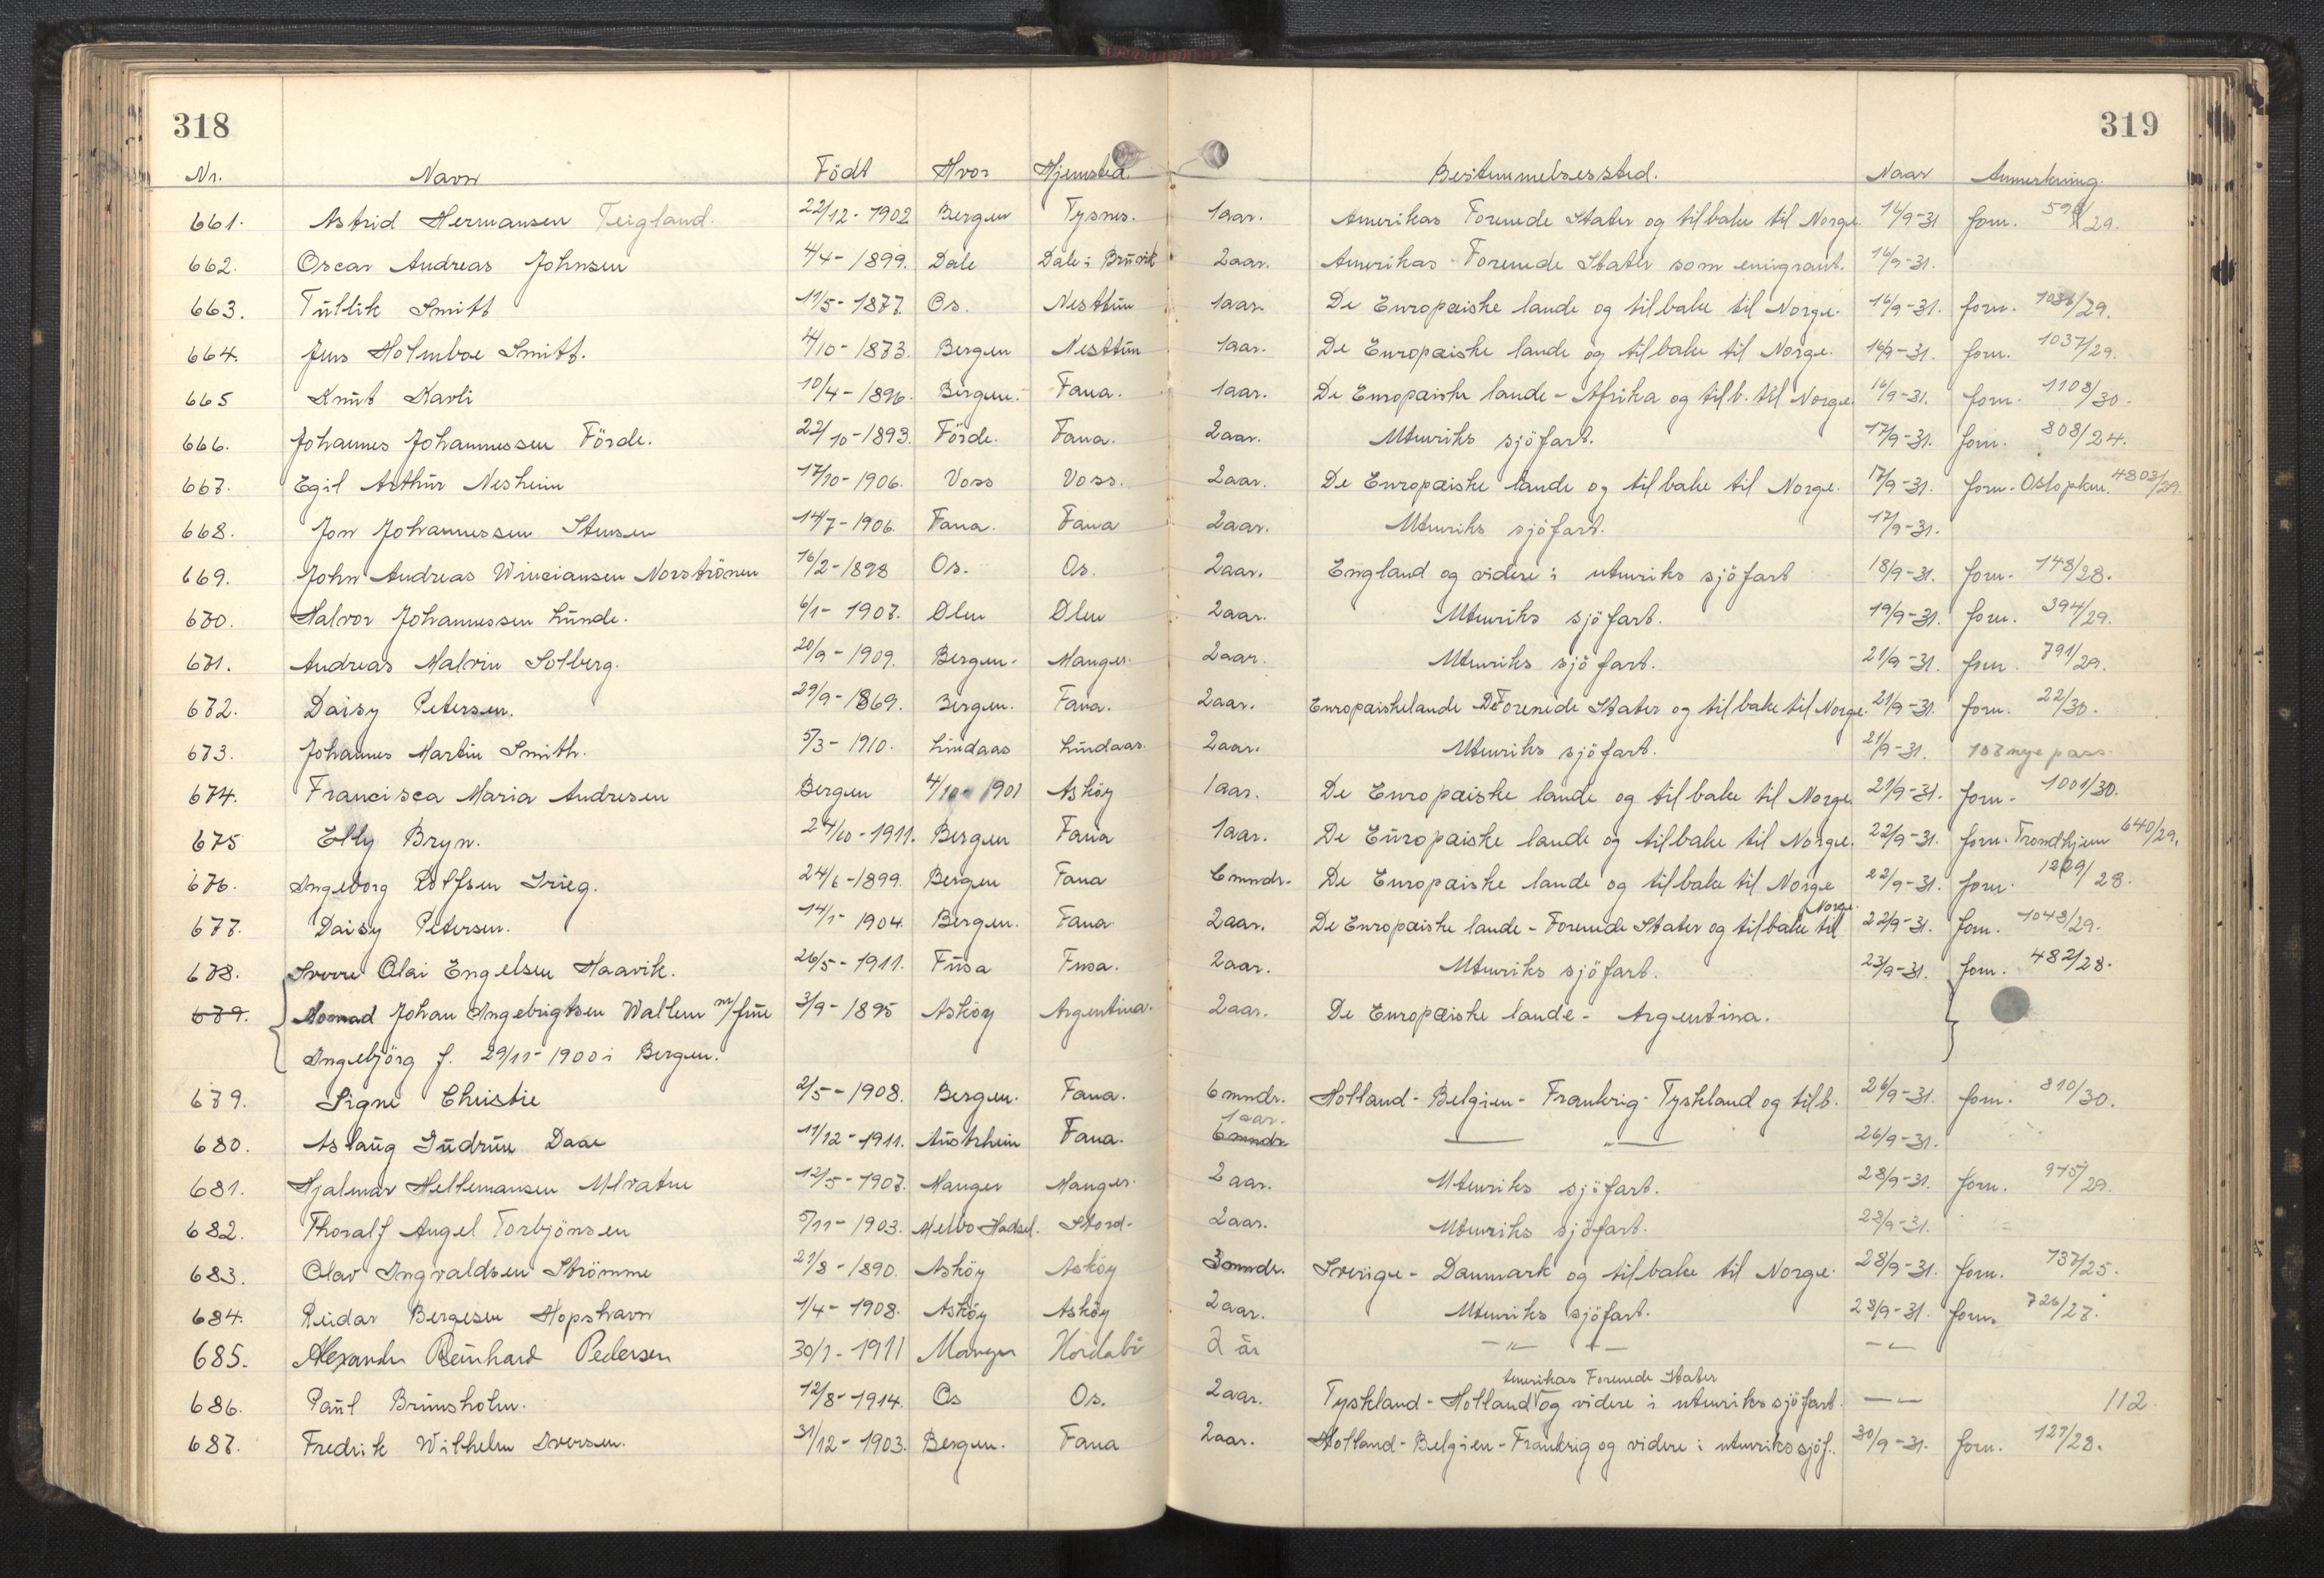 318
319
Nr. Navn Födt Hvor Hjemsted. Bestemmelsessted. Naar Anmerkning.
661. Astrid Hermansen Teigland. 22/12-1902 Bergen Tysnes. 1aar. Amerikas Forenede Stater og tilbake til Norge. 16/9-31 forn. 29.
662. Oscar Andreas Johnsen 4/4-1899. Dale Dale i Bruvik 2aar. Amerikas Forenede Stater som emigrant. 16/9-31.
663. Tullik Smitt 11/5-1877. Os. Nesttun 1aar. De Europæiske lande og tilbake til Norge. 16/9-31. forn. 1038/29.
664. Jens Holmboe Smitt. 4/10-1873. Bergen Nesttun 1aar. De Europæiske lande og tilbake til Norge. 16/9-31. forn. 1037/29.
665 Knut Kavli 10/4-1896. Bergen. Fana. 1aar. De Europæiske lande - Afrika og tilb. til Norge. 16/9-31. forn. 1108/30.
666. Johannes Johannessen Förde. 22/10-1893. Förde. Fana. 2aar. Utenriks sjöfart. 17/9-31. forn. 808/24.
667. Egil Arthur Nesheim 17/10-1906. Voss Voss. 2aar. De Europæiske lande og tilbake til Norge. 17/9-31. forn. Oslo pkm. 4803/29.
668. Jon Johannessen Stensen 14/7-1906. Fana. Fana 2aar. Utenriks sjöfart. 17/9-31.
669. John Andreas Winciansen Norströnen 16/2-1898 Os. Os. 2aar. England og videre i utenriks sjöfart 18/9-31. forn. 148/28.
670. Halvor Johannessen Lunde. 6/1-1907. Ølen Ølen 2aar. Utenriks sjöfart. 19/9-31. forn. 394/29.
671. Andreas Malvin Solberg. 20/9-1909. Bergen. Manger. 2aar. Utenriks sjöfart. 21/9-31. forn. 791/29.
672. Daisy Petersen. 29/9-1869. Bergen. Fana. 2aar. Europæiskelande De Forenede Stater og tilbake til Norge. 21/9-31. forn. 22/30.
673. Johannes Martin Smith. 5/3-1910. Lindaas Lindaas. 2aar. Utenriks sjöfart. 21/9-31. 107 nye pass.
674. Francisca Maria Andresen Bergen 4/10-1901 Asköy 1aar. De Europæiske lande og tilbake til Norge. 21/9-31. forn. 1001/30.
675 Elly Bryn. 24/10-1911. Bergen Fana 1aar. De Europæiske lande og tilbake til Norge. 22/9-31. forn. Trondhjem 640/29.
676. Ingeborg Rolfsen Grieg. 24/6-1899. Bergen Fana 6mndr. De Europæiske lande og tilbake til Norge 22/9-31. forn. 1229/28.
677. Daisy Petersen. 14/1-1904. Bergen. Fana 2aar. De Europæiske lande - Forenede Stater og tilbake til Norge. 22/9-31. forn. 1048/29.
678. Sverre Olai Engelsen Haavik. 26/5-1911. Fusa Fusa. 2aar. Utenriks sjöfart. 23/9-31. forn. 482/28.
679. Johan Ingebrigtsen Wallem m/frue 3/9-1895 Asköy Argentina. 2aar. De Europæiske lande - Argentina.
Ingebjörg f. 29/11-1900 i Bergen.
679. Signe Christie 2/5-1908. Bergen. Fana. 6mndr. Holland - Belgien - Frankrig - Tyskland og tilb. 26/9-31. forn. 810/30.
680. Aslaug Gudrun Daae 11/12-1911. Austrheim Fana. 1aar. 6mndr. — " — 26/9-31.
681. Hjalmar Hellemansen Ulvatne 12/5-1907. Manger Manger. 2aar. Utenriks sjöfart. 28/9-31. forn. 945/29.
682. Thoralf Angel Torbjönsen 5/11-1903. Melbo Hadsel. Stord. 2aar. Utenriks sjöfart. 28/9-31.
683. Olav Ingvaldsen Strömme 21/8-1890. Asköy Asköy 3mndr. Sverige - Danmark og tilbake til Norge. 28/9-31. forn. 737/25.
684. Reidar Bergesen Hopshavn 1/4-1908. Asköy Asköy 2aar. Utenriks sjöfart. 28/9-31 forn. 726/27.
685. Alexander Reinhard Pedersen 30/1-1911 Manger Hordabö 2 år - " - - " -
686. Paul Brimsholm. 12/8-1914. Os Os. 2aar. Tyskland - Holland Amerikas Forenede Stater og videre i utenriks sjöfart. — " — 112.
687. Fredrik Wilhelm Iversen. 31/12-1903. Bergen. Fana 2aar. Holland - Belgien - Frankrig og videre i utenriks sjöf. 30/9-31. forn. 127/28.